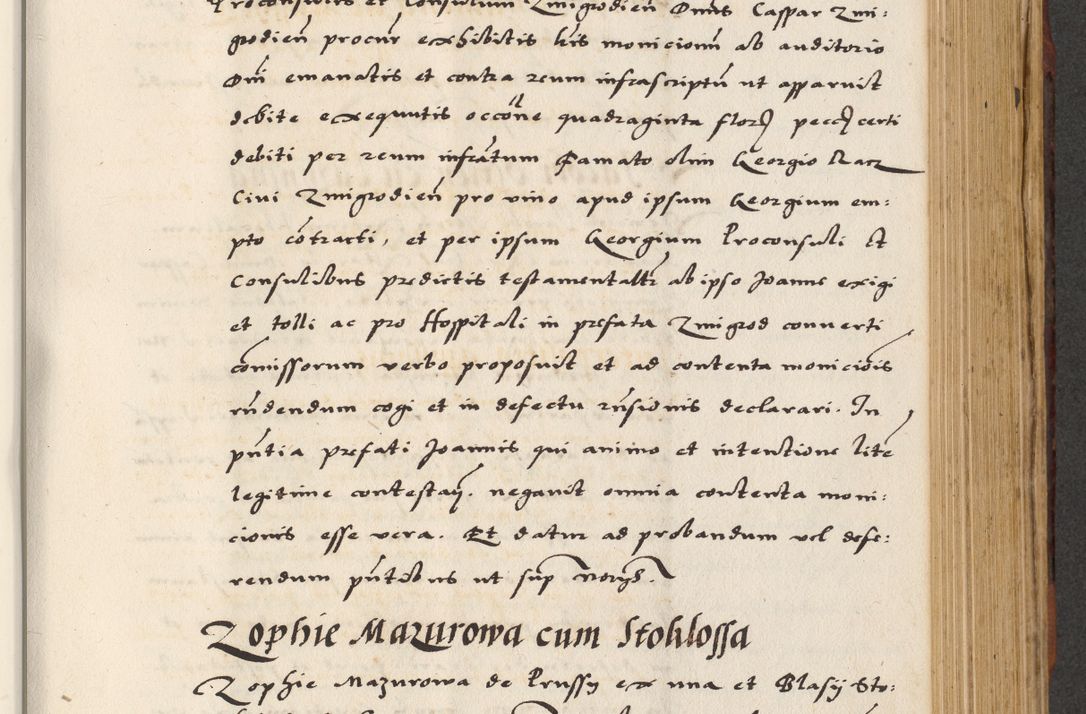 Proconsulis et Consulum Zmigrodien̄ Dnus Caspar Zmi:
grodien̄ procur exhibitis his monicionū ab auditorio
Dnī emanatis et contra reum infrascriptū ut apparuit
debite exequutis occōne quadraginta flor pecc certi
debiti per reum infrātum Famato olim Georgio Kacz
Civi Zmigrodien̄ pro vino apud ipsum Georgium em:
pto cōtracti, et per ipsum Georgium Proconsuli Et
Consulibus predictis testamentaltr ab ipso Joanne exigi
et tolli ac pro Hospitali in prefata Zmigrod converti
cōmissorum verbo proposuit et ad contenta moniciōis
rn̄dendum cogi et in defectu rn̄sionis declarari. In
pn̄tia prefati Joannis qui animo et intentione litē
legitime contestan̄. negavit omnia contenta moni:
cionis esse vera. Et datur ad probandum vel defe:
rendum pn̄tibus ut sup noīs.
Zophie Mazurowa cum Stoklossa
Zophie Mazurowa de Prussy ex una et Blasij Sto: